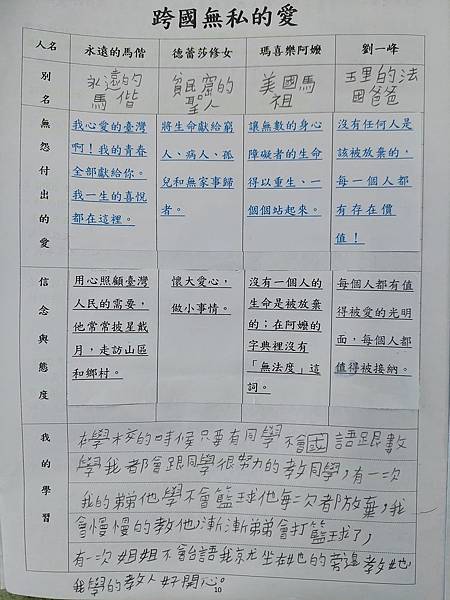 跨國無私的愛
人名
永遠的馬偕
德蕾莎修女
瑪喜樂阿嬤
劉一峰
別名
永遠的
馬偕
貧民窟的
聖人
美國馬
祖
玉里的法
國爸爸
無怨付出的愛
我心愛的臺灣
啊！我的青春
全部獻給你。
我一生的喜悅
都在這裡。
將生命獻給窮
人、病人、孤
兒和無家事歸
者。
讓無數的身心
障礙者的生命
得以重生、一
個個站起來。
沒有任何人是
該被放棄的，
每一個人都
有存在價
值！
信念與態度
用心照顧臺灣
人民的需要，
他常常披星戴
月，走訪山區
和鄉村。
懷大愛心，
做小事情。
沒有一個人的
生命是被放棄
的；在阿嬤的
字典裡沒有
「無法度」這
詞。
每個人都有值
得被愛的光明
面，每個人都
值得被接納。
我的學習
在學校的時候只要有同學不會國語跟數
學我都會跟同學很努力的教同學，有一次
我的弟弟他學不會籃球他每次都放棄，我
會慢慢的教他，漸漸弟弟會打籃球了，
有一次姐姐不會台語我就坐在她的旁邊教她
我學的教人好開心。
10